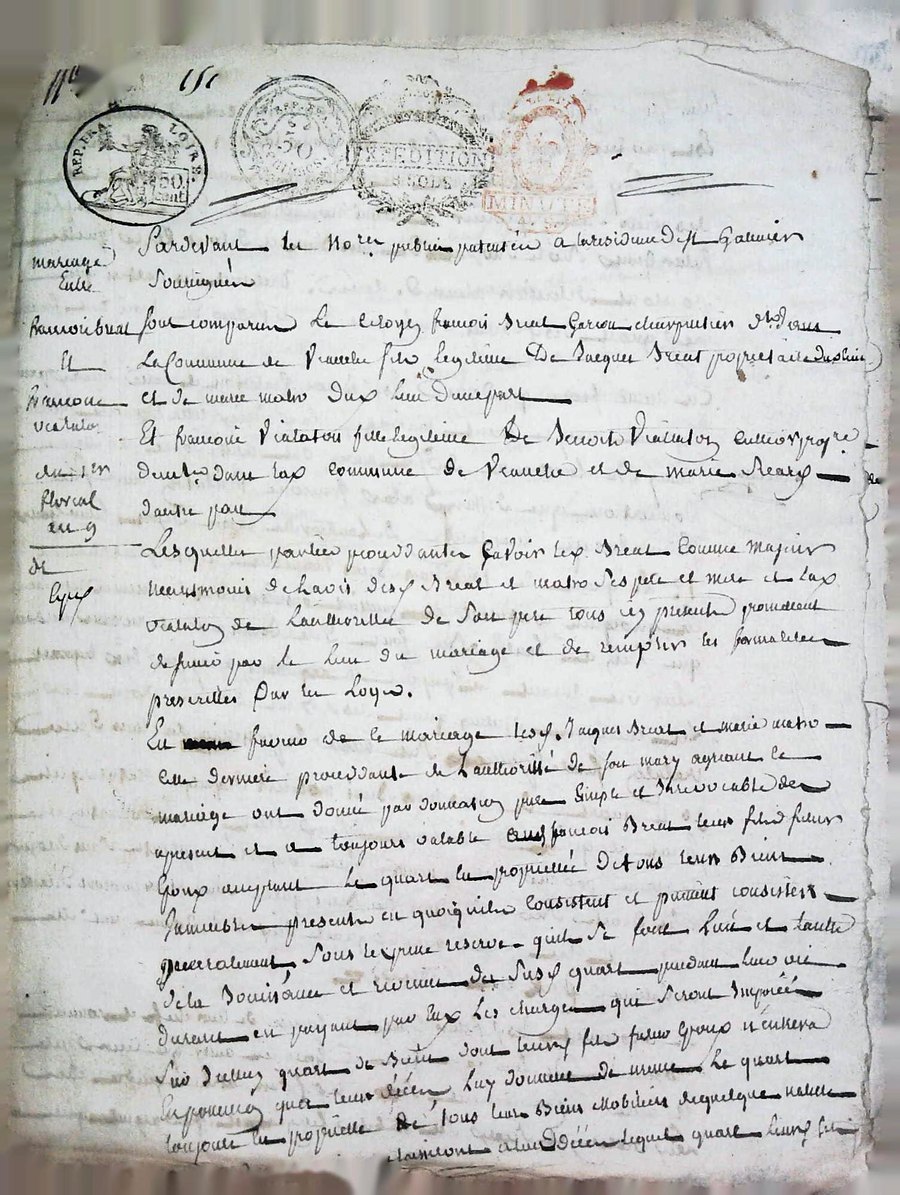 REP. FRA. LOIRE
50 cent
EXPEDITION
8 SOLS
MINUTE
mariage
Entre
francois breat
Et
francoise
viataton
du 1er
floreal
an 9
Pardevant les Nores publics patentés a la residence de St Galmier
Soussignés
sont comparus Le Citoyen francois Breat Garçon charpentier
La Commune de Veauche fils legitime De Jacques Breat proprietaire
et de marie matro dux lieu d'une part
Et francoise Viataton fille legitime De Benoit Viataton
dans lax commune de Veauche et de marie
d'autre part
Lesquelles parties procedantes Sçavoir lex Breat Comme majeur
neanmoins de Lavis desx Breat et matro Ses pere et mere et lax
viataton de Lauthorité de Son pere tous icy presents promettent
de sunir par le lien du mariage et de remplir les formalités
prescrittes Par les Loyx.
En faveur de ce mariage lesx Jacques Breat et marie matro
cette derniere procedante de Lauthorité de son mary agreant le
mariage ont donné par donnation pure Simple et Irrevocable des
apresent et a toujours valable francois Breat leur fils futur
Epoux acceptant Le quart en propriété de tous leurs Biens
Immeubles presents en quoiquils Consistent et puissent consister
generalement, Sous reserve quils Se font Lun et Lautre
de la Jouissance et revenu du Susx quart pendant leur vie
durant en payant par eux Les charges qui Seront Imposées
Sur quart de Biens dont leurx fils futur Epoux n'entrera
En possession quapres leur décès, Luy donnent de meme Le quart
toujours en propriété de tous leurs Biens Mobiliers de quelque nature
a leur décès lequel quart leurx fils